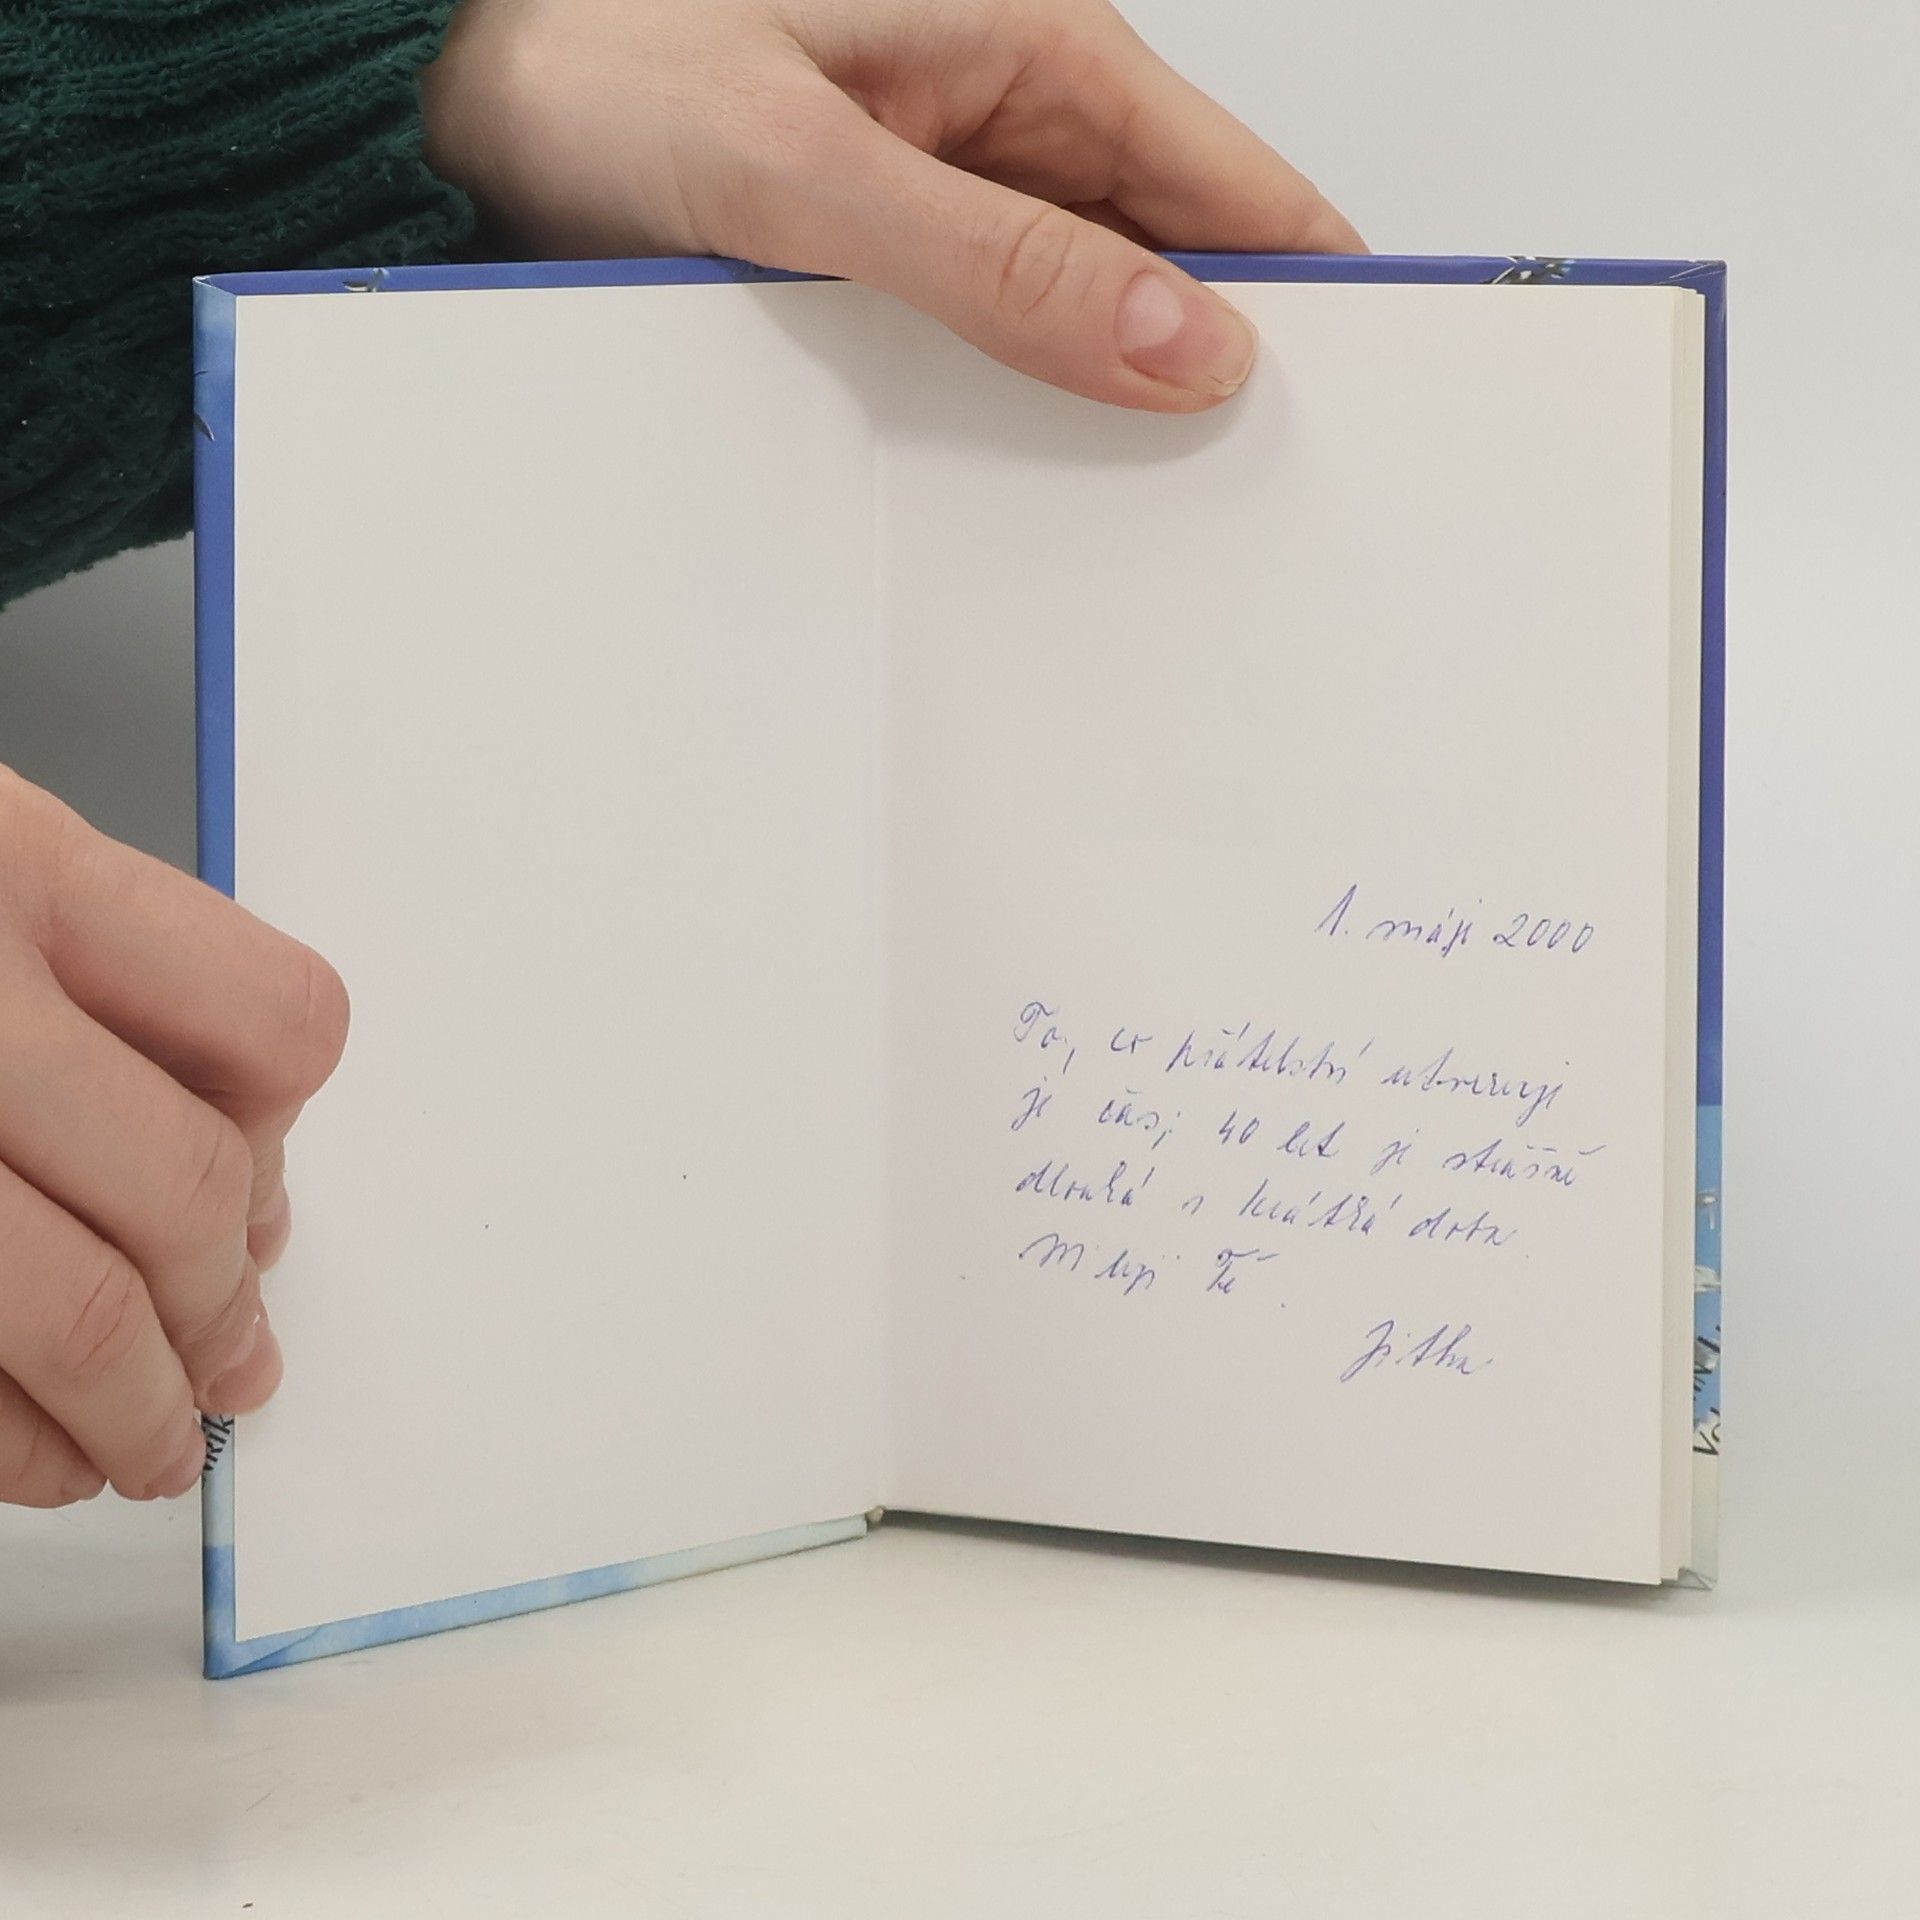 1. máji 2000
To, co přátelství utvrzuje
je čas; 40 let je strašně
dlouhá a krátká doba
Miluji Tě.
Jitka